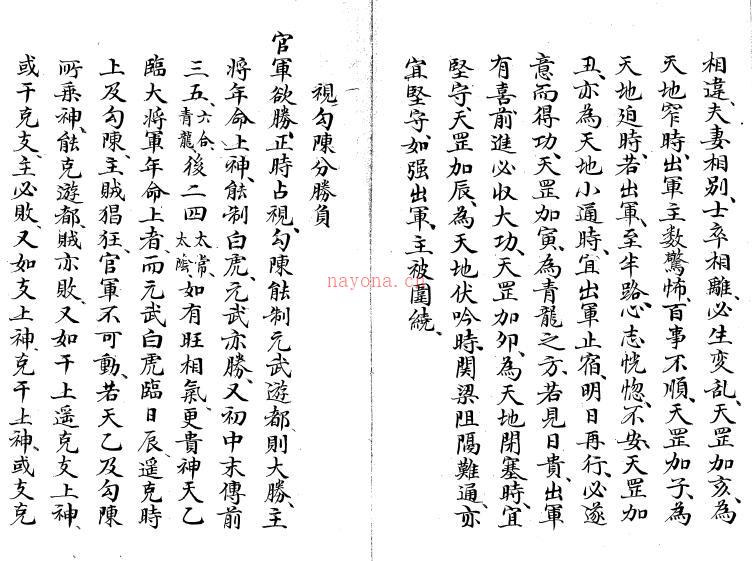 相違、夫妻相別、士卒相離、必生变乱、天罡加亥、為
天地窄時、出軍主数驚怖、百事不順、天罡加子、為
天地迫時、若出軍、至半路、心志恍惚、不安、天罡加
丑、亦為天地小通時、宜出軍止宿、明日再行、必遂
意而得功、天罡加寅、為青龍之方、若見日貴、出軍
有喜前進必收大功、天罡加卯、為天地閉塞時、宜
堅守、天罡加辰、為天地伏吟時、関梁阻隔難通、亦
宜堅守、如强出軍、主被圍繞、
視勾陳分勝負
官軍欲勝、正時占視、勾陳能制元武遊都、則大勝、主
將年命上神、能制白虎、元武亦勝、又初中末傳前
三五、六合青龍、後二四太常太陰、如有旺相氣、更貴神天乙
臨大将軍年命上者、而元武白虎臨日辰、遥克時
上及勾陳、主賊猖狂、官軍不可動、若天乙及勾陳
所乘神、能克遊都、賊亦敗、又如干上遥克支上神、
或干克支、主必敗、又如支上神、克干上神、或支克
nayona.cn